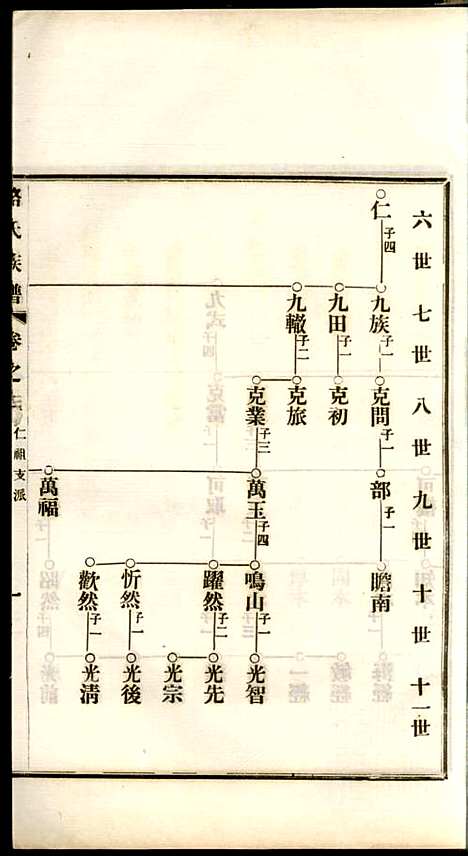 六世 七世 八世 九世 十世 十一世
仁 子四
九族 子一
克問 子一
部 子一
瞻南
九田 子一
克初
九轍 子二
克旅
克業 子三
萬玉 子四
鳴山 子一
光智
躍然 子二
光先
光宗
忻然 子一
光後
歡然 子一
光清
萬福
氏族譜 卷之
仁祖支派
一